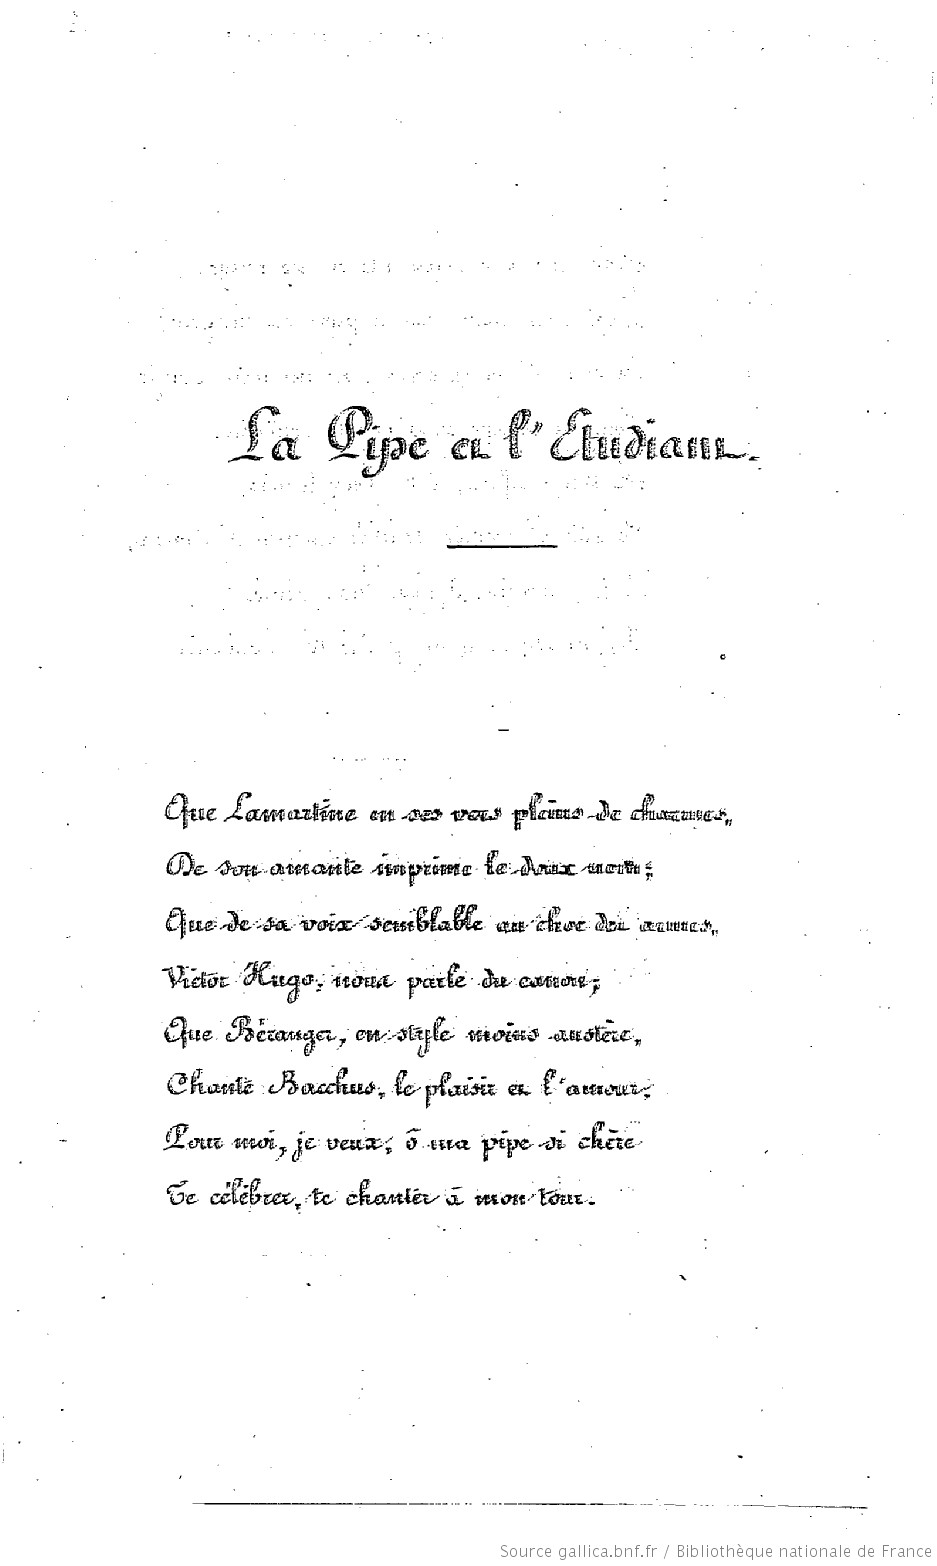 La Pipe et l'Etudiant.
Que Lamartine en ses vers pleins de charmes,
De son amante imprime le doux nom;
Que de sa voix semblable au choc des armes,
Victor Hugo, nous parle du canon;
Que Béranger, en style moins austère,
Chante Bacchus, le plaisir et l'amour;
Pour moi, je veux, ô ma pipe si chère
Te célébrer, te chanter à mon tour.
Source gallica.bnf.fr / Bibliothèque nationale de France